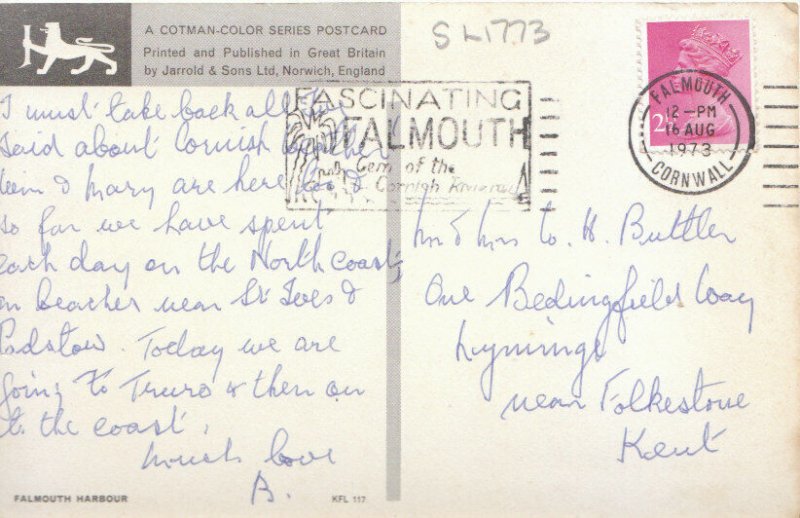 A COTMAN-COLOR SERIES POSTCARD
Printed and Published in Great Britain
by Jarrold & Sons Ltd, Norwich, England
SL1773
FASCINATING
FALMOUTH
Gem of the
Cornish Riviera
FALMOUTH
12 - PM
16 AUG
1973
CORNWALL
2½
I must take back all I've
said about Cornish weather
& Mary are here too &
so far we have spent
each day on the North Coast,
on beaches near St Ives &
Padstow. Today we are
going to Truro & then on
to the coast.
Much love
B.
Mr & Mrs W. H. Buttler
One Bedingfield Way
Lyminge
near Folkestone
Kent
FALMOUTH HARBOUR
KFL 117